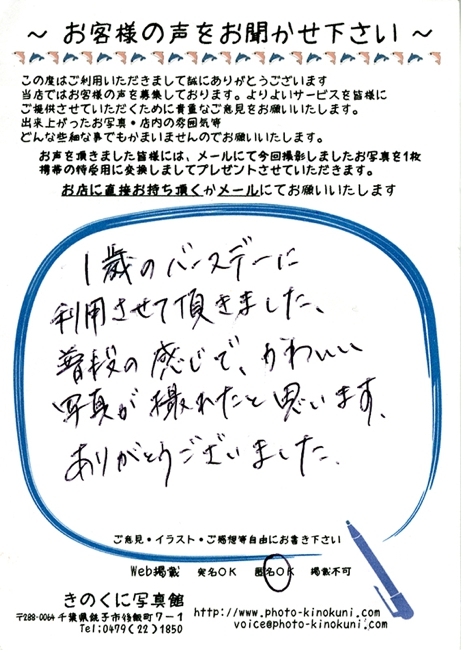 ～ お客様の声をお聞かせ下さい ～
この度はご利用いただきまして誠にありがとうございます
当店ではお客様の声を募集しております。よりよいサービスを皆様に
ご提供させていただくために貴重なご意見をお願いいたします。
出来上がったお写真・店内の雰囲気等
どんな些細な事でもかまいませんのでお願いいたします。
お声を頂きました皆様には、メールにて今回撮影しましたお写真を1枚
携帯の待受用に変換しましてプレゼントさせていただきます。
お店に直接お持ち頂くかメールにてお願いいたします
1歳のバースデーに
利用させて頂きました、
普段の感じで、かわいい
写真が撮れたと思います、
ありがとうございました、
ご意見・イラスト・ご感想等自由にお書き下さい
Web掲載 実名OK 匿名OK 掲載不可
きのくに写真館
〒288-0064 千葉県銚子市後飯町7-1
Tel:0479(22)1850
http://www.photo-kinokuni.com
voice@photo-kinokuni.com